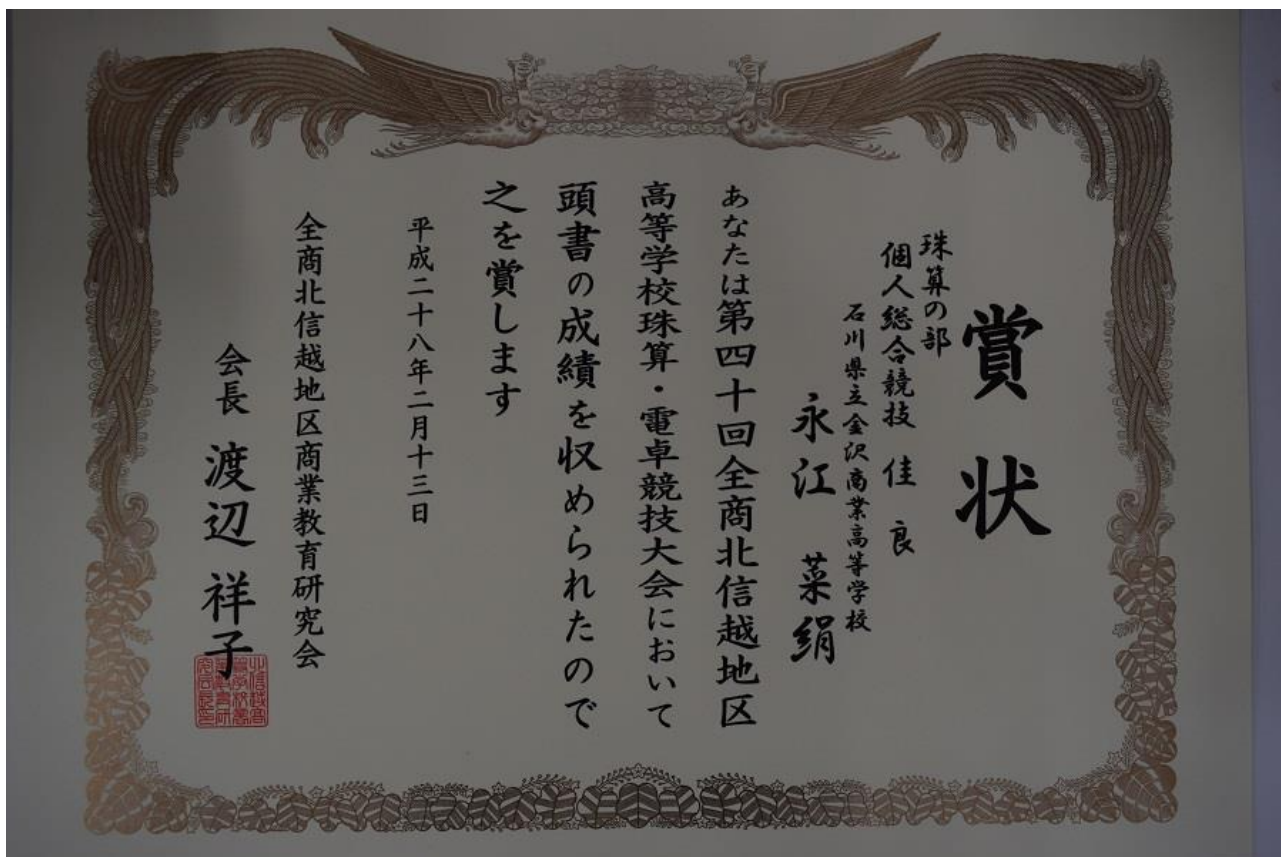 賞状
珠算の部
個人総合競技 佳良
石川県立金沢商業高等学校
永江 菜絹
あなたは第四十回全商北信越地区
高等学校珠算・電卓競技大会において
頭書の成績を収められたので
之を賞します
平成二十八年二月十三日
全商北信越地区商業教育研究会
会長 渡辺 祥子